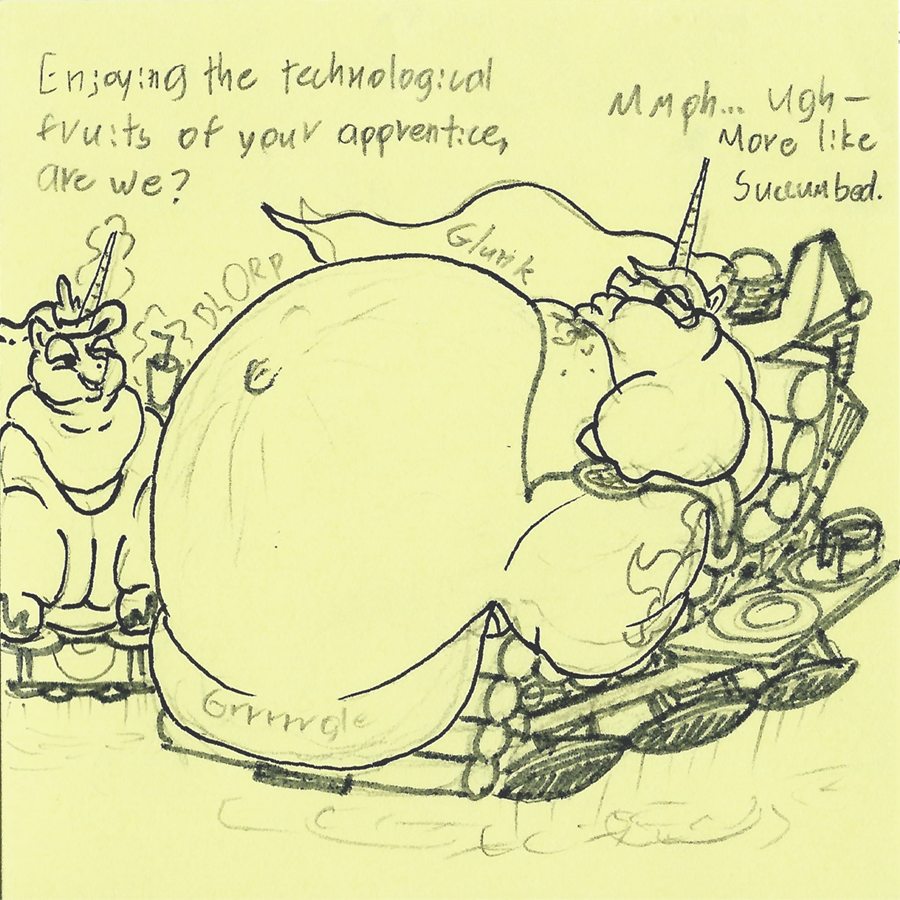 Enjoying the technological
fruits of your apprentice,
are we?
Mmph... Ugh—
More like
Succumbed.
Glurik
BLORP
Grrrrrgle